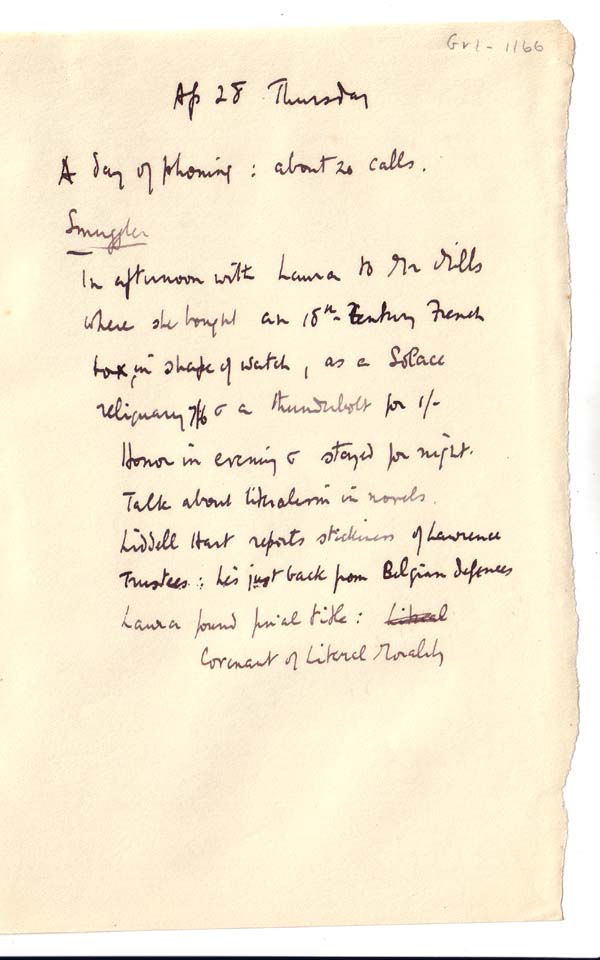 Gr1-1166
Ap 28 Thursday
A day of phoning : about 20 calls.
Smuggler
In afternoon with Laura to Mr Mills
where she bought an 18th Century French
box, in shape of watch, as a Solace
reliquary 7/6 & a thunderbolt for 1/-
Honor in evening & stayed for night.
Talk about literalism in novels.
Liddell Hart reports stickiness of Lawrence
Trustees : he's just back from Belgian defences
Laura found final title : Literal
Covenant of Literal Morality